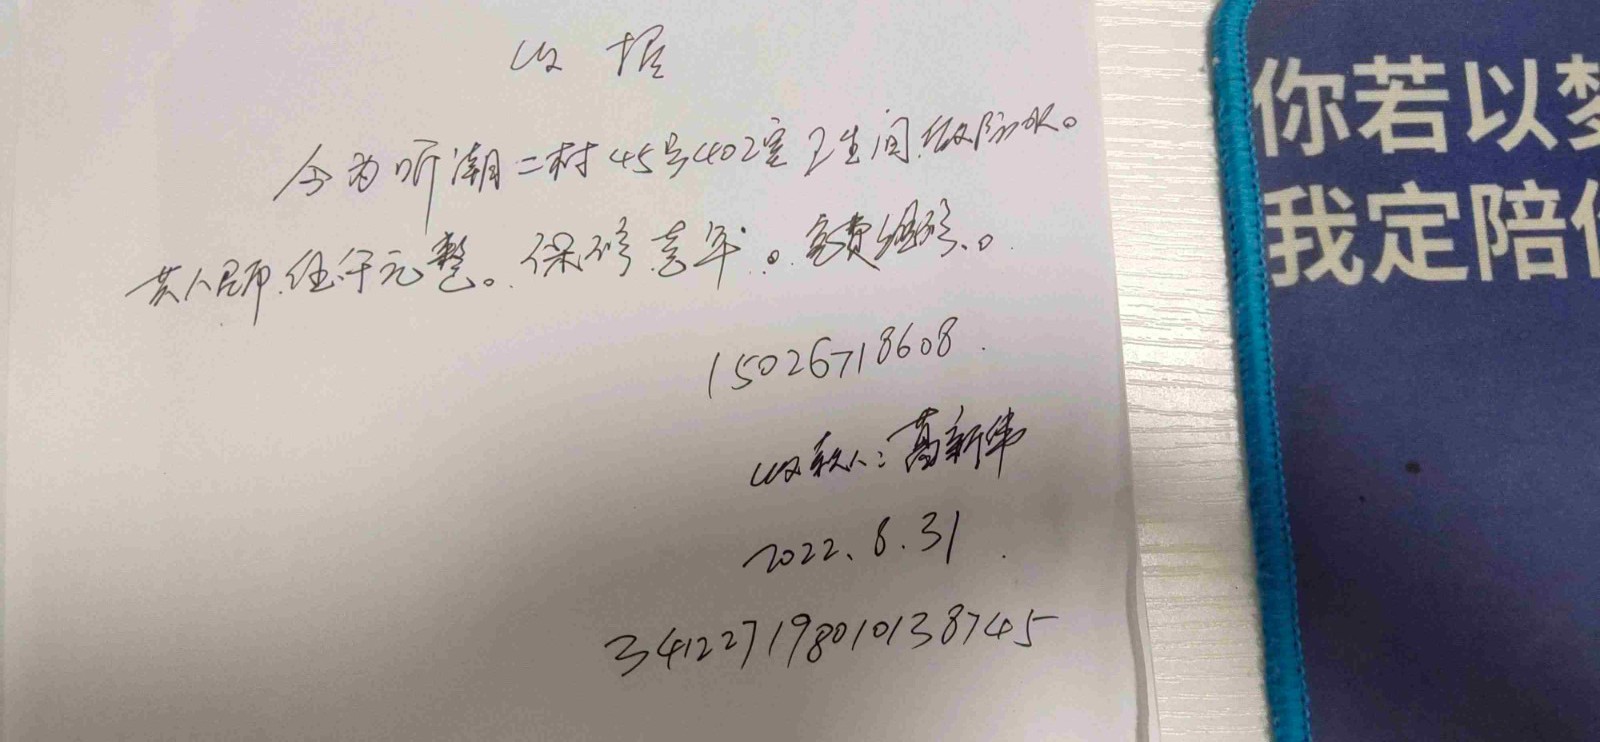 收据
今为听潮二村45号402室卫生间做防水。
共人民币伍仟元整。保修壹年。免费维修。
15026718608
收款人:葛新伟
2022.8.31
341227198010138745
你若以梦
我定陪你